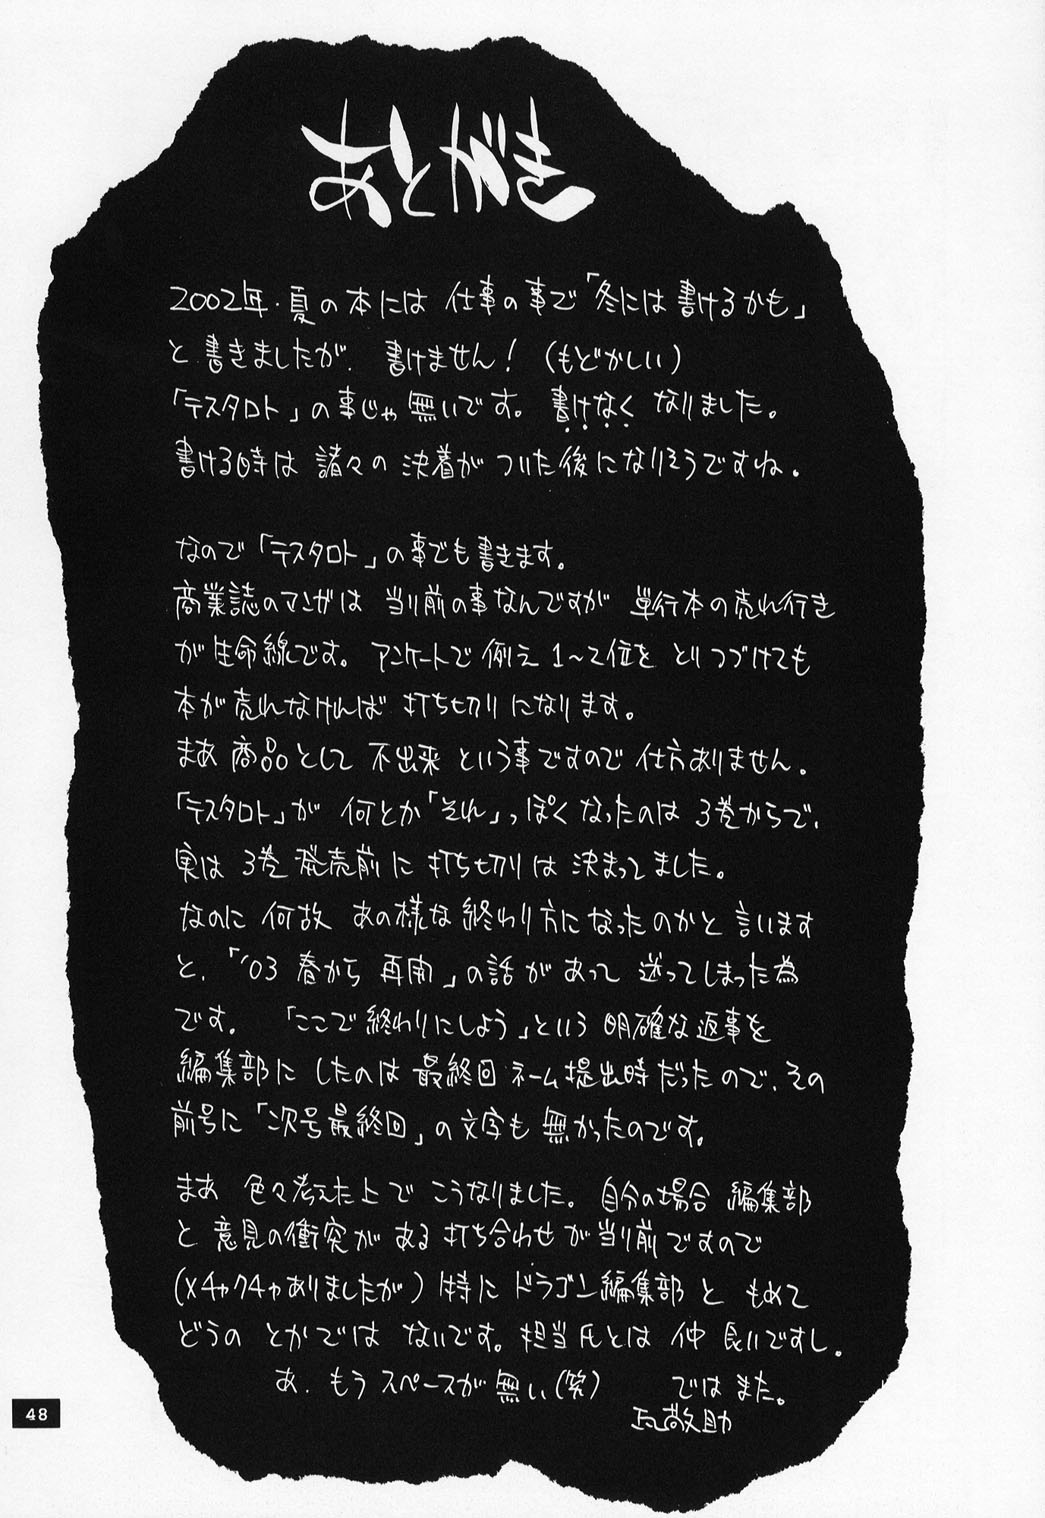 あとがき
2002年・夏の本には 仕事の事で「冬には書けるかも」
と書きましたが、書けません！(もどかしい)
「テスタロト」の事じゃ無いです。書けなく なりました。
書ける時は 諸々の 決着が ついた後になりそうですね。
なので「テスタロト」の事でも書きます。
商業誌のマンガは 当り前の事なんですが 単行本の売れ行き
が生命線です。アンケートで 例え 1〜2位を とりつづけても
本が売れなければ 打ち切りになります。
まあ 商品として 不出来 という事ですので 仕方ありません。
「テスタロト」が 何とか「それ」っぽくなったのは 3巻からで、
実は 3巻 発売前に 打ち切りは 決まってました。
なのに 何故 あの様な終わり方になったのかと 言います
と、「'03 春から 再開」の話があって 迷ってしまった為
です。 「ここで終わりにしよう」という 明確な返事を
編集部に したのは 最終回 ネーム提出時だったので、その
前号に「次号最終回」の文字も 無かったのです。
まあ 色々考えた上で こうなりました。自分の場合 編集部
と 意見の衝突が ある 打ち合わせが当り前ですので
(メチャクチャありましたが) 特に ドラゴン編集部と もめて
どうの とかでは ないです。担当氏とは 仲 良いですし。
あ、もう スペースが 無い(笑) では また。
瓦敬助
48